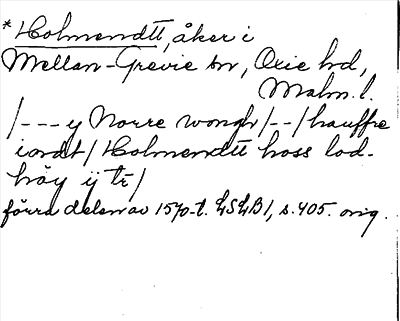 *Holmendtt, åker i
Mellan-Grevie sn, Oxie hd,
Malm. l.
/--- y Norre wongh/--/hauffre
iordt/Holmendtt hoss lod-
høy ij tr/
förra delen av 1570-t. LSLB1, s. 405. orig.